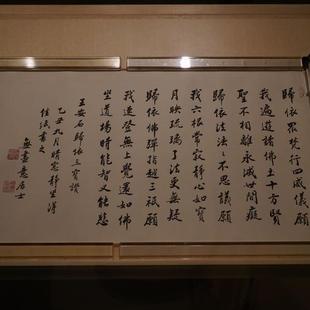 歸依眾梵行四威儀願
我遍遊諸佛土十方賢
聖不相離永滅世間癡
歸依法法〻不思議願
我六根常寂靜心如寶
月映琉璃了法更無疑
歸依佛彈指越三祇願
我速登無上覺還如佛
坐道場時能智又能悲
王安石歸依三寶贊
乙丑九月晴窗靜坐得
佳紙書之
無盡意居士